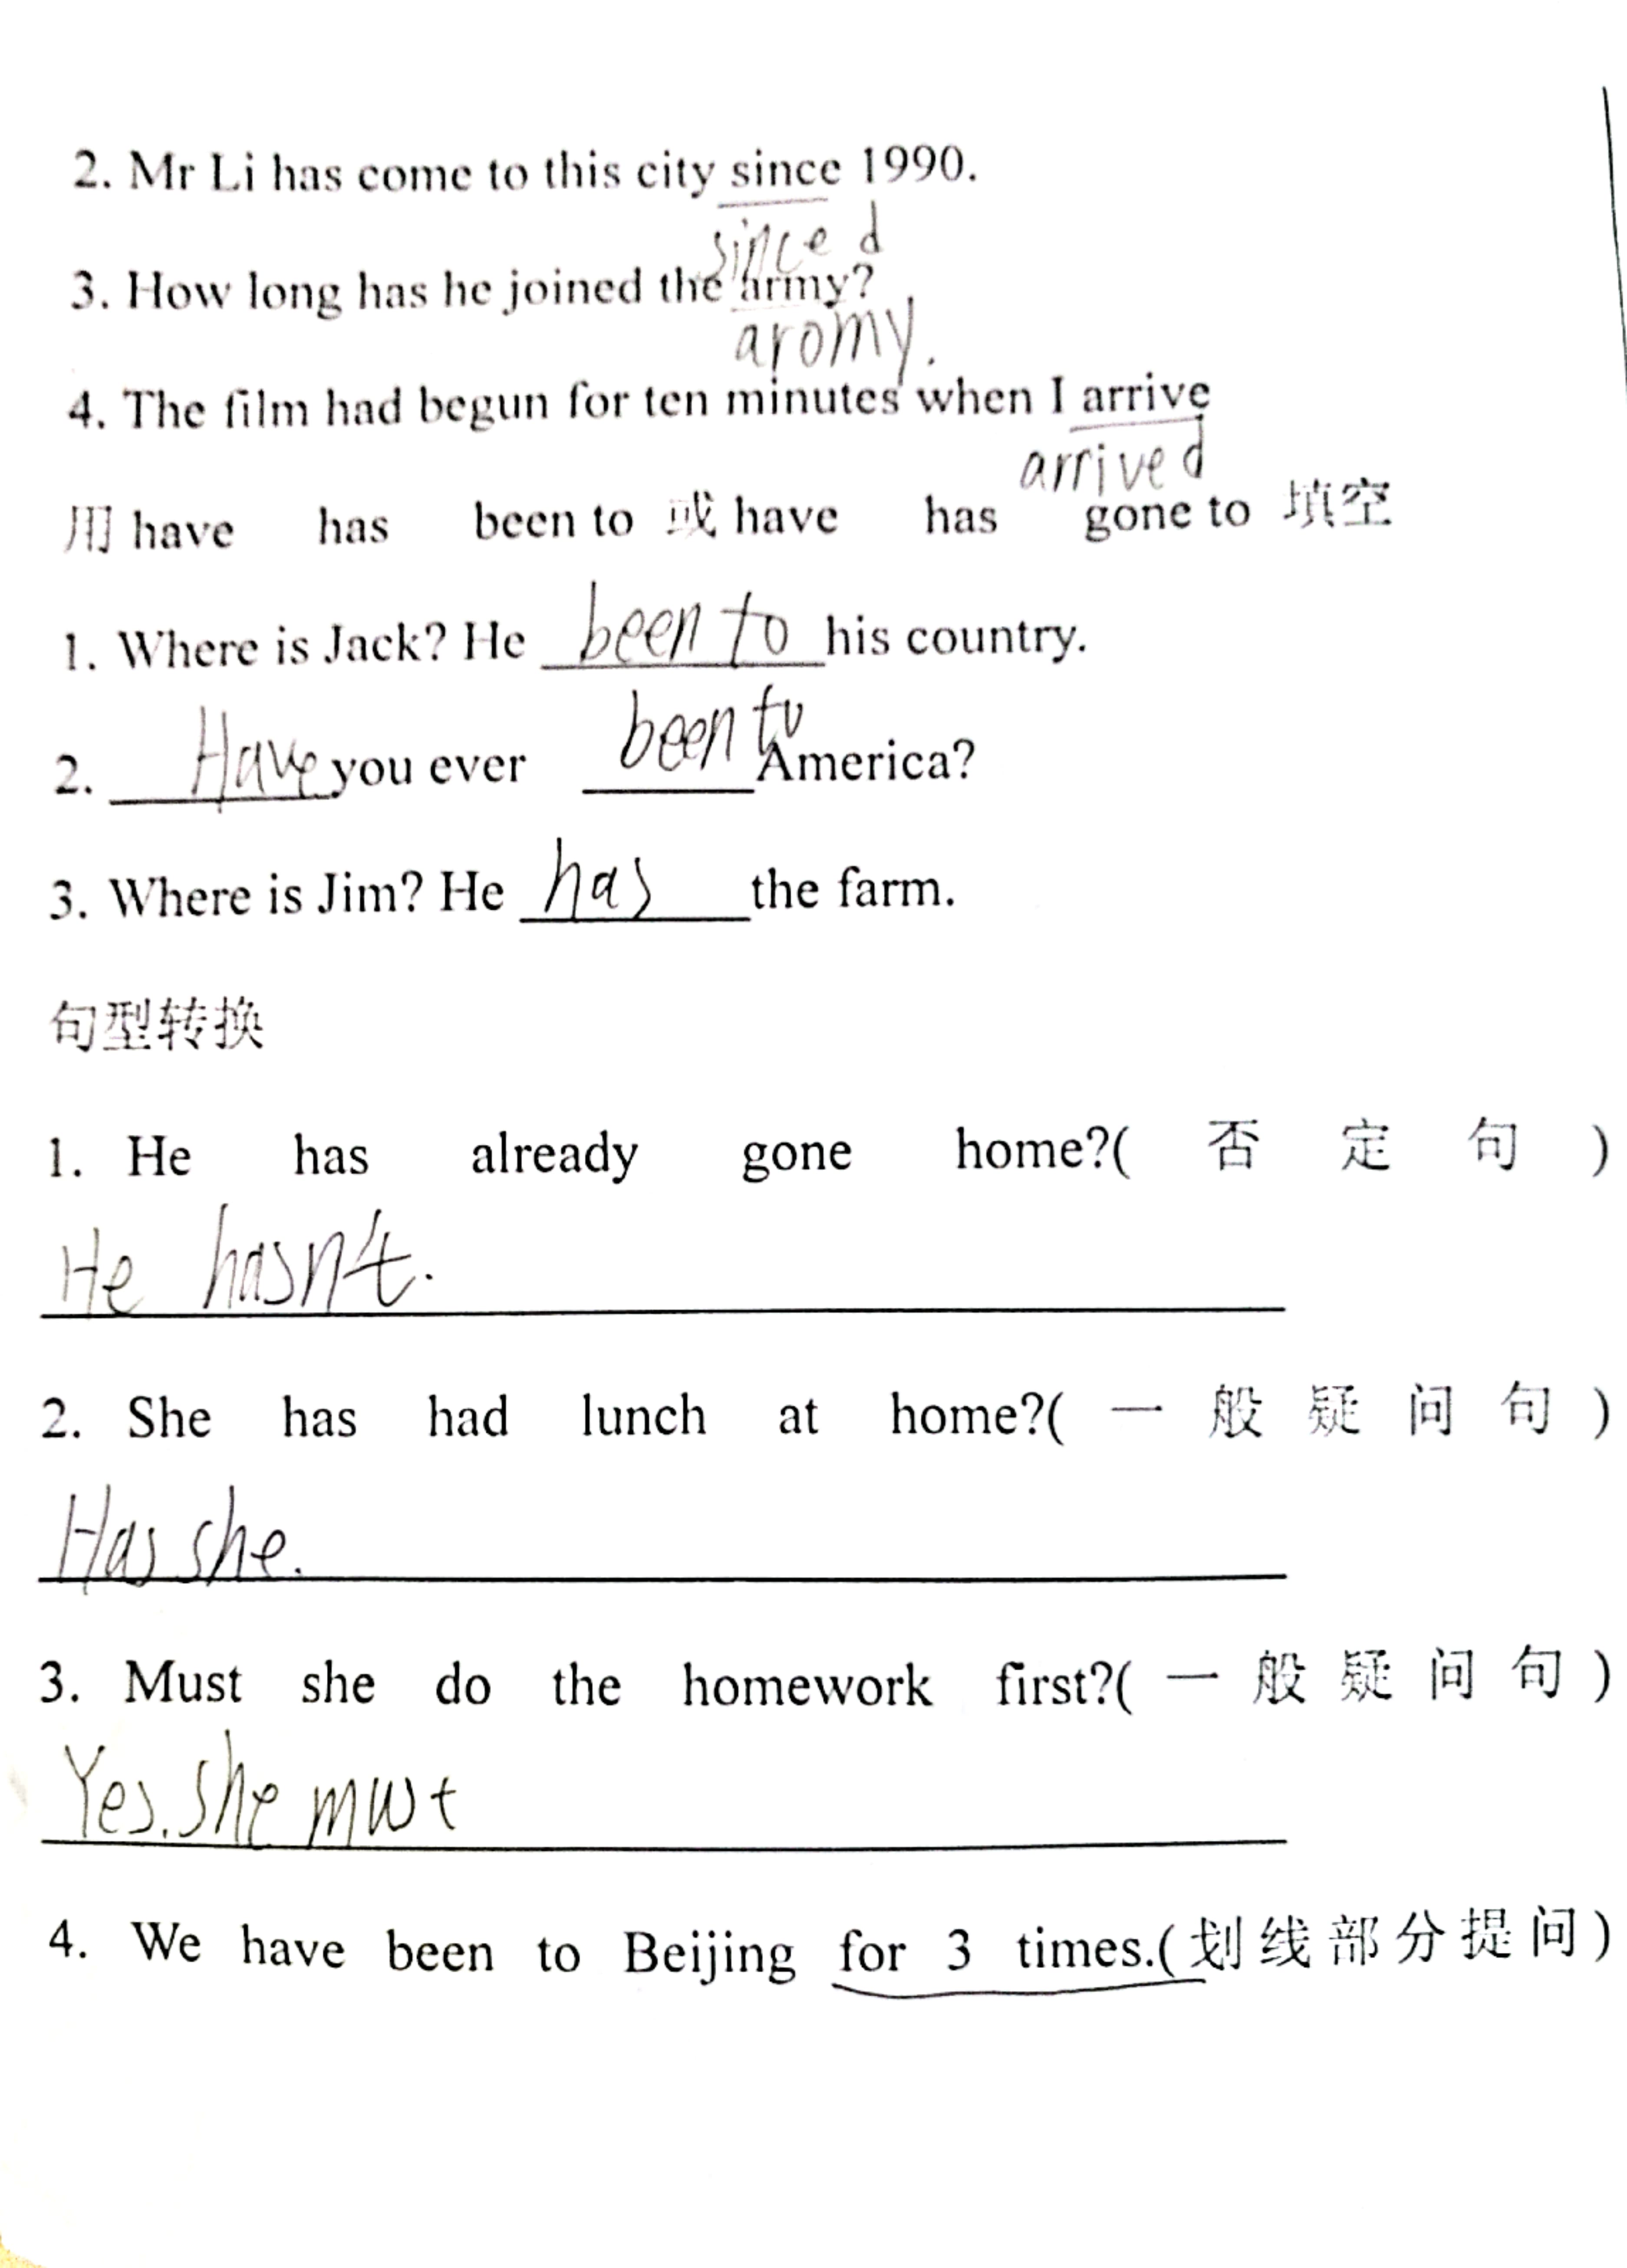 2. Mr Li has come to this city since 1990.
since d
3. How long has he joined the army?
aromy.
4. The film had begun for ten minutes when I arrive
arrived
用 have has been to 或 have has gone to 填空
1. Where is Jack? He been to his country.
2. Have you ever been to America?
3. Where is Jim? He has the farm.
句型转换
1. He has already gone home?(否定句)
He hasn't.
2. She has had lunch at home?(一般疑问句)
Has she.
3. Must she do the homework first?(一般疑问句)
Yes. she must
4. We have been to Beijing for 3 times.(划线部分提问)